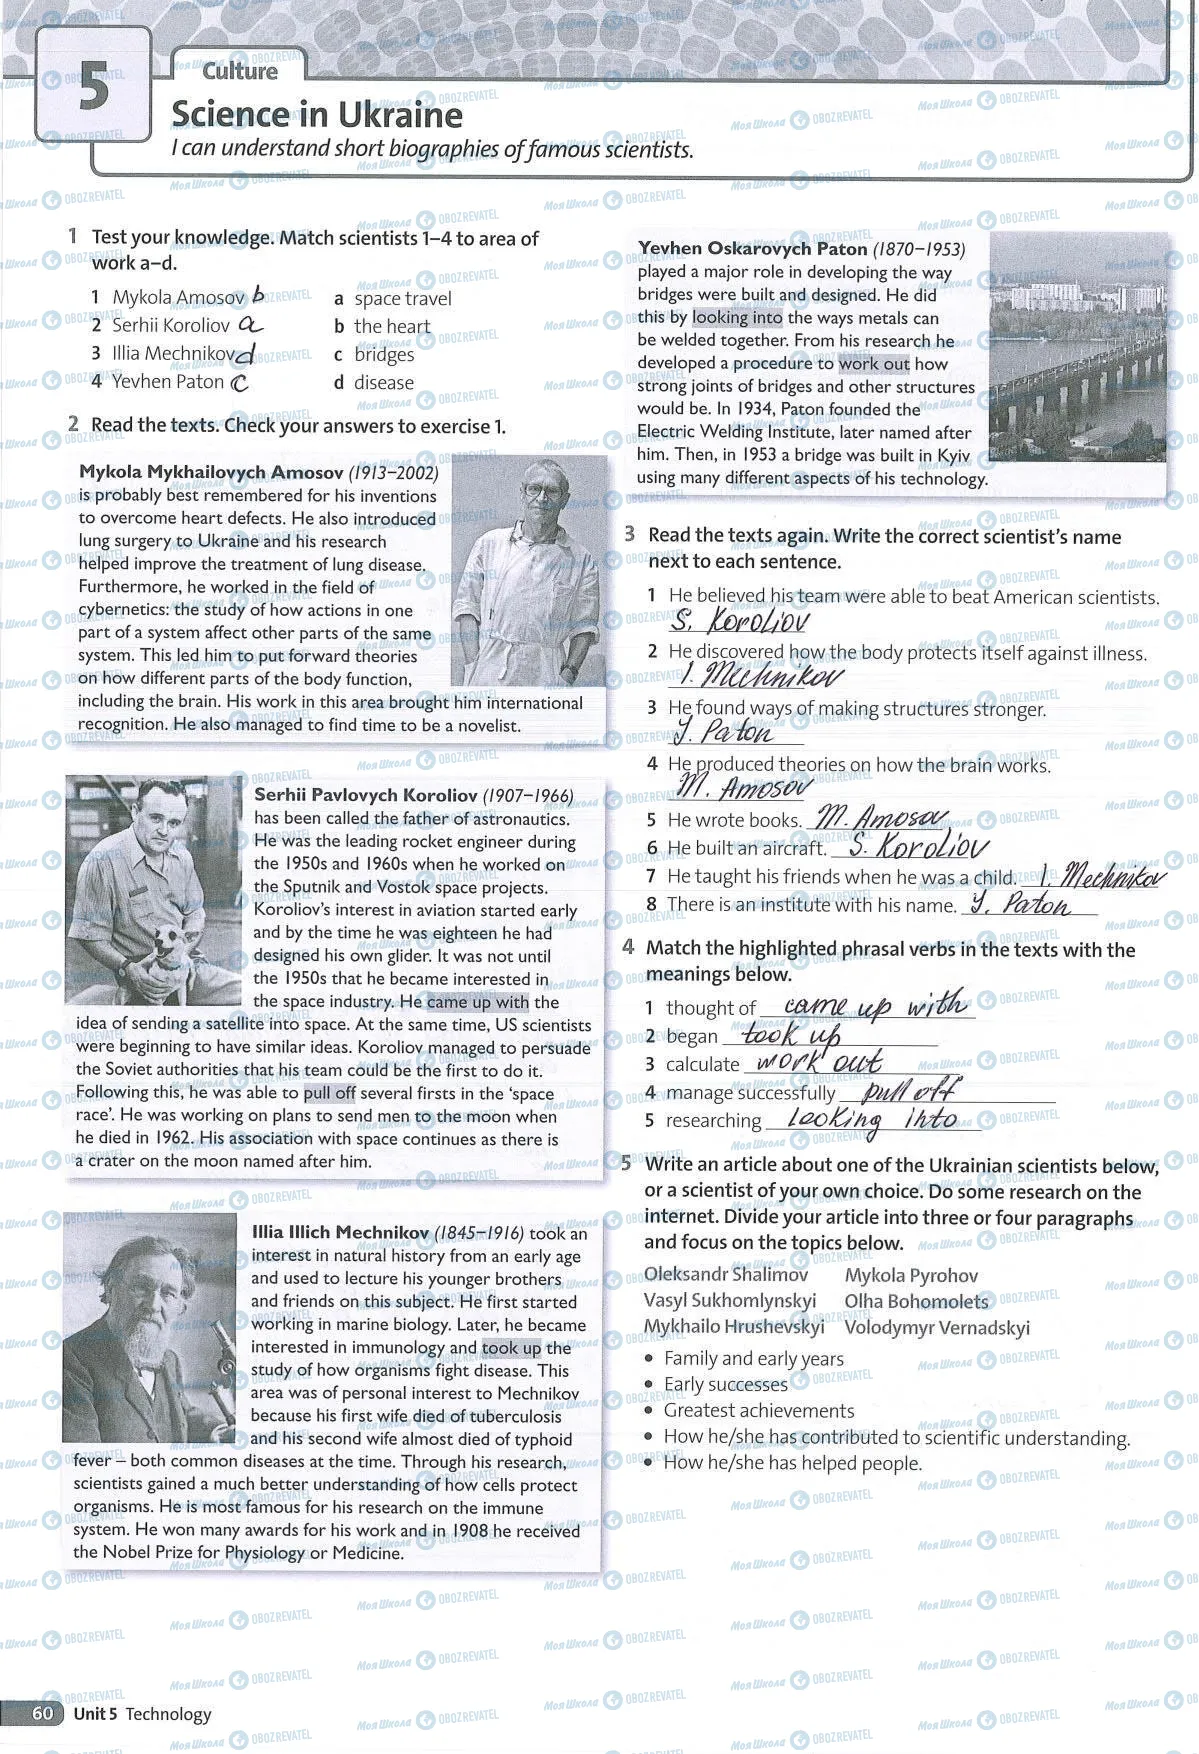 5
Culture
Science in Ukraine
I can understand short biographies of famous scientists.
1 Test your knowledge. Match scientists 1–4 to area of
work a–d.
1 Mykola Amosov b
2 Serhii Koroliov a
3 Illia Mechnikov d
4 Yevhen Paton c
a space travel
b the heart
c bridges
d disease
2 Read the texts. Check your answers to exercise 1.
Mykola Mykhailovych Amosov (1913–2002)
is probably best remembered for his inventions
to overcome heart defects. He also introduced
lung surgery to Ukraine and his research
helped improve the treatment of lung disease.
Furthermore, he worked in the field of
cybernetics: the study of how actions in one
part of a system affect other parts of the same
system. This led him to put forward theories
on how different parts of the body function,
including the brain. His work in this area brought him international
recognition. He also managed to find time to be a novelist.
Serhii Pavlovych Koroliov (1907–1966)
has been called the father of astronautics.
He was the leading rocket engineer during
the 1950s and 1960s when he worked on
the Sputnik and Vostok space projects.
Koroliov's interest in aviation started early
and by the time he was eighteen he had
designed his own glider. It was not until
the 1950s that he became interested in
the space industry. He came up with the
idea of sending a satellite into space. At the same time, US scientists
were beginning to have similar ideas. Koroliov managed to persuade
the Soviet authorities that his team could be the first to do it.
Following this, he was able to pull off several firsts in the ‘space
race’. He was working on plans to send men to the moon when
he died in 1962. His association with space continues as there is
a crater on the moon named after him.
Illia Illich Mechnikov (1845–1916) took an
interest in natural history from an early age
and used to lecture his younger brothers
and friends on this subject. He first started
working in marine biology. Later, he became
interested in immunology and took up the
study of how organisms fight disease. This
area was of personal interest to Mechnikov
because his first wife died of tuberculosis
and his second wife almost died of typhoid
fever – both common diseases at the time. Through his research,
scientists gained a much better understanding of how cells protect
organisms. He is most famous for his research on the immune
system. He won many awards for his work and in 1908 he received
the Nobel Prize for Physiology or Medicine.
Yevhen Oskarovych Paton (1870–1953)
played a major role in developing the way
bridges were built and designed. He did
this by looking into the ways metals can
be welded together. From his research he
developed a procedure to work out how
strong joints of bridges and other structures
would be. In 1934, Paton founded the
Electric Welding Institute, later named after
him. Then, in 1953 a bridge was built in Kyiv
using many different aspects of his technology.
3 Read the texts again. Write the correct scientist's name
next to each sentence.
1 He believed his team were able to beat American scientists.
S. Koroliov
2 He discovered how the body protects itself against illness.
I. Mechnikov
3 He found ways of making structures stronger.
Y. Paton
4 He produced theories on how the brain works.
M. Amosov
5 He wrote books. M. Amosov
6 He built an aircraft. S. Koroliov
7 He taught his friends when he was a child. I. Mechnikov
8 There is an institute with his name. Y. Paton
4 Match the highlighted phrasal verbs in the texts with the
meanings below.
1 thought of came up with
2 began took up
3 calculate work out
4 manage successfully pull off
5 researching looking into
5 Write an article about one of the Ukrainian scientists below,
or a scientist of your own choice. Do some research on the
internet. Divide your article into three or four paragraphs
and focus on the topics below.
Oleksandr Shalimov Mykola Pyrohov
Vasyl Sukhomlynskyi Olha Bohomolets
Mykhailo Hrushevskyi Volodymyr Vernadskyi
• Family and early years
• Early successes
• Greatest achievements
• How he/she has contributed to scientific understanding.
• How he/she has helped people.
60 Unit 5 Technology
Моя Школа OBOZREVATEL